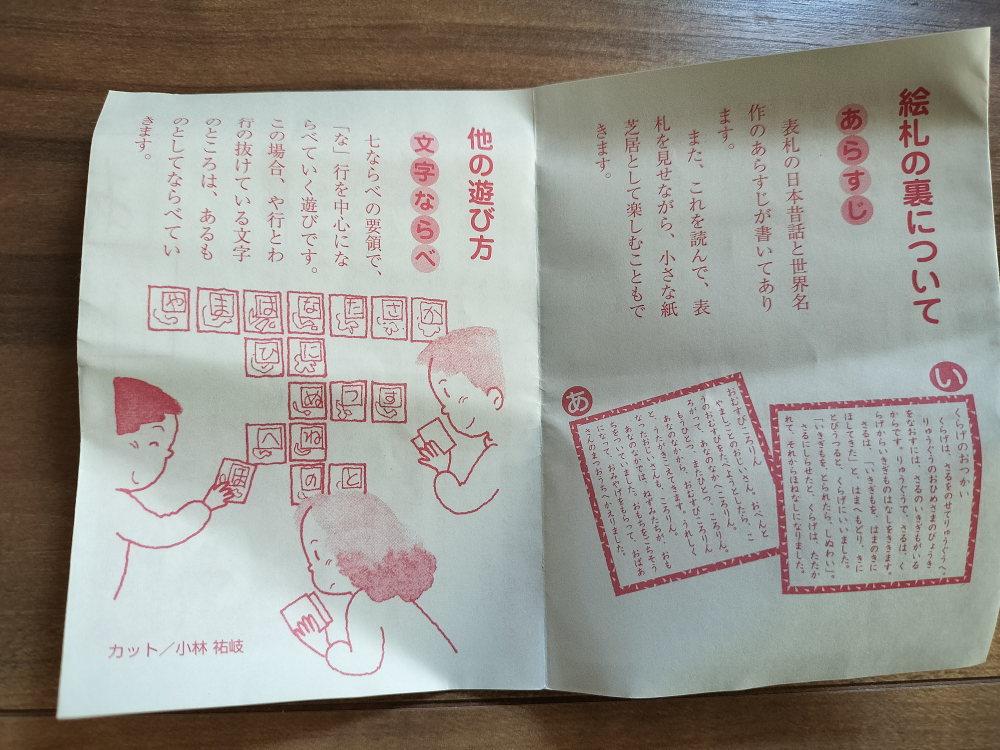 絵札の裏について
あらすじ
表札の日本昔話と世界名
作のあらすじが書いてあり
ます。
また、これを読んで、表
札を見せながら、小さな紙
芝居として楽しむこともで
きます。
い
くらげのおつかい
くらげは、さるをのせてりゅうぐうへ。
りゅうぐうのおひめさまのびょうき
をなおすには、さるのいきぎもがいる
からです。りゅうぐうで、さるは、く
らげからいきぎものはなしをききます。
さるは、「いきぎもを、はまのきに
ほしてきた」と、はまへもどり、きに
とびうつると、くらげにいいました。
「いきぎもを、とられたら、しぬわい」。
さるにしらせたと、くらげは、たたか
れて、それからほねなしになりました。
あ
おむすびころりん
やましごとのおじいさん。おべんと
うのおむすびをたべようとしたら、こ
ろがって、あなのなかへころりん。
もうひとつ、またひとつ、ころりん。
あなのなかから、おむすびころりん
と、うたがきこえてきます。うれしく
なったおじいさんも、ころりん。
あなのなかでは、ねずみたちが、おも
ちをついていました。おもちをごちそう
になって、おみやげをもらって、おばあ
さんのまつおうちへかえりました。
他の遊び方
文字ならべ
七ならべの要領で、
「な」行を中心にな
らべていく遊びです。
この場合、や行とわ
行の抜けている文字
のところは、あるも
のとしてならべてい
きます。
か さ た な は ま や
に ひ
す つ ぬ
ね へ
と の
ほ
カット／小林 祐岐